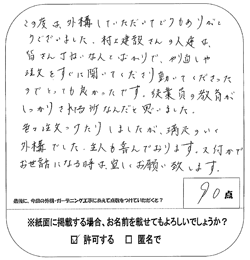 この度は、外構していただいてありがとうございました。村上建設さんの人達は、
皆さんていねいな人ばかりで、やり直しや
注文をすぐに聞いてくださり動いてくださった
のでとっても良かったです。従業員の教育が
しっかりされてるなんだと思いました。
色々注文つけたりしましたが、満足のいく
外構でした。主人も喜んでおります。又何かで
お世話になる時は宜しくお願い致します。
最後に、今回の外構・ガーデニング工事にあえて点数をつけていただくと?
90点
※紙面に掲載する場合、お名前を載せてもよろしいでしょうか?
☑ 許可する □ 匿名で